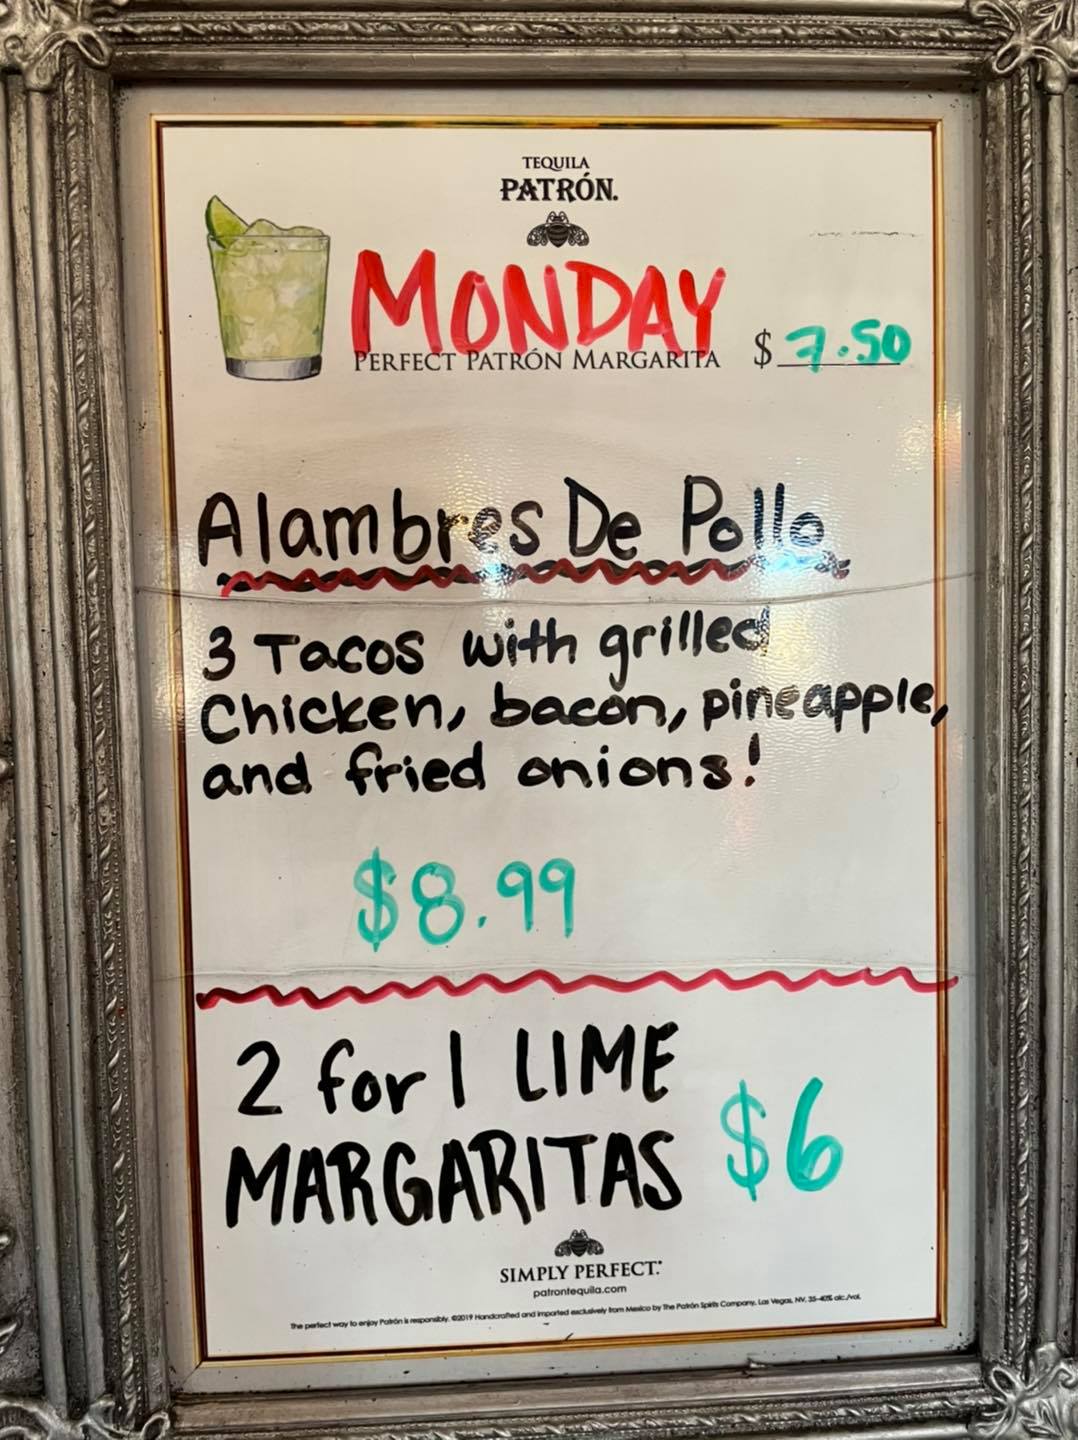 TEQUILA
PATRÓN.
MONDAY
PERFECT PATRÓN MARGARITA $ 7.50
Alambres De Pollo
3 Tacos with grilled
Chicken, bacon, pineapple,
and fried onions!
$8.99
2 for 1 LIME
MARGARITAS $6
SIMPLY PERFECT.
patrontequila.com
The perfect way to enjoy Patrón is responsibly. ©2019 Handcrafted and imported exclusively from Mexico by The Patrón Spirits Company, Las Vegas, NV. 35-40% alc./vol.